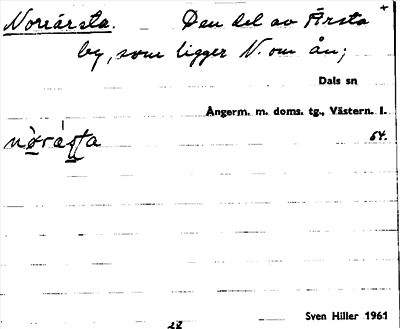 Norrårsta. Den del av Årsta +
by, som ligger N. om ån;
Dals sn
Ångerm. m. doms. tg., Västern. l.
64.
Sven Hiller 1961